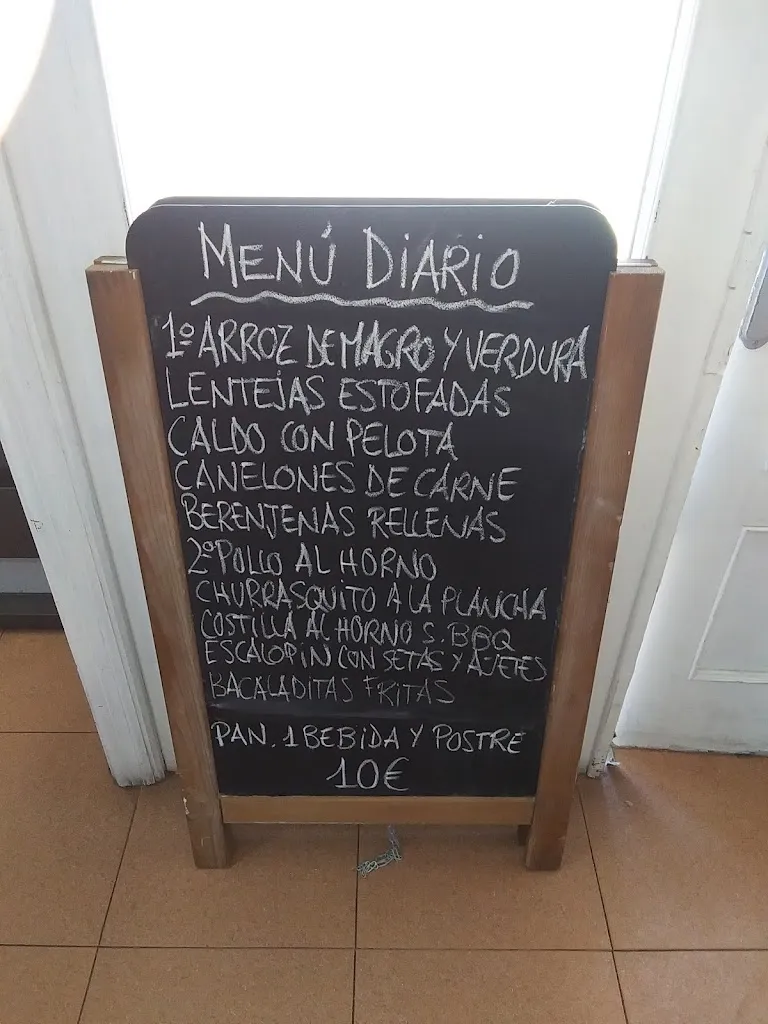 MENÚ DIARIO
1º ARROZ DE MAGRO Y VERDURA
LENTEJAS ESTOFADAS
CALDO CON PELOTA
CANELONES DE CARNE
BERENJENAS RELLENAS
2º POLLO AL HORNO
CHURRASQUITO A LA PLANCHA
COSTILLA AL HORNO S. BBQ
ESCALOPIN CON SETAS Y AJETES
BACALADITAS FRITAS
PAN. 1 BEBIDA Y POSTRE
10€